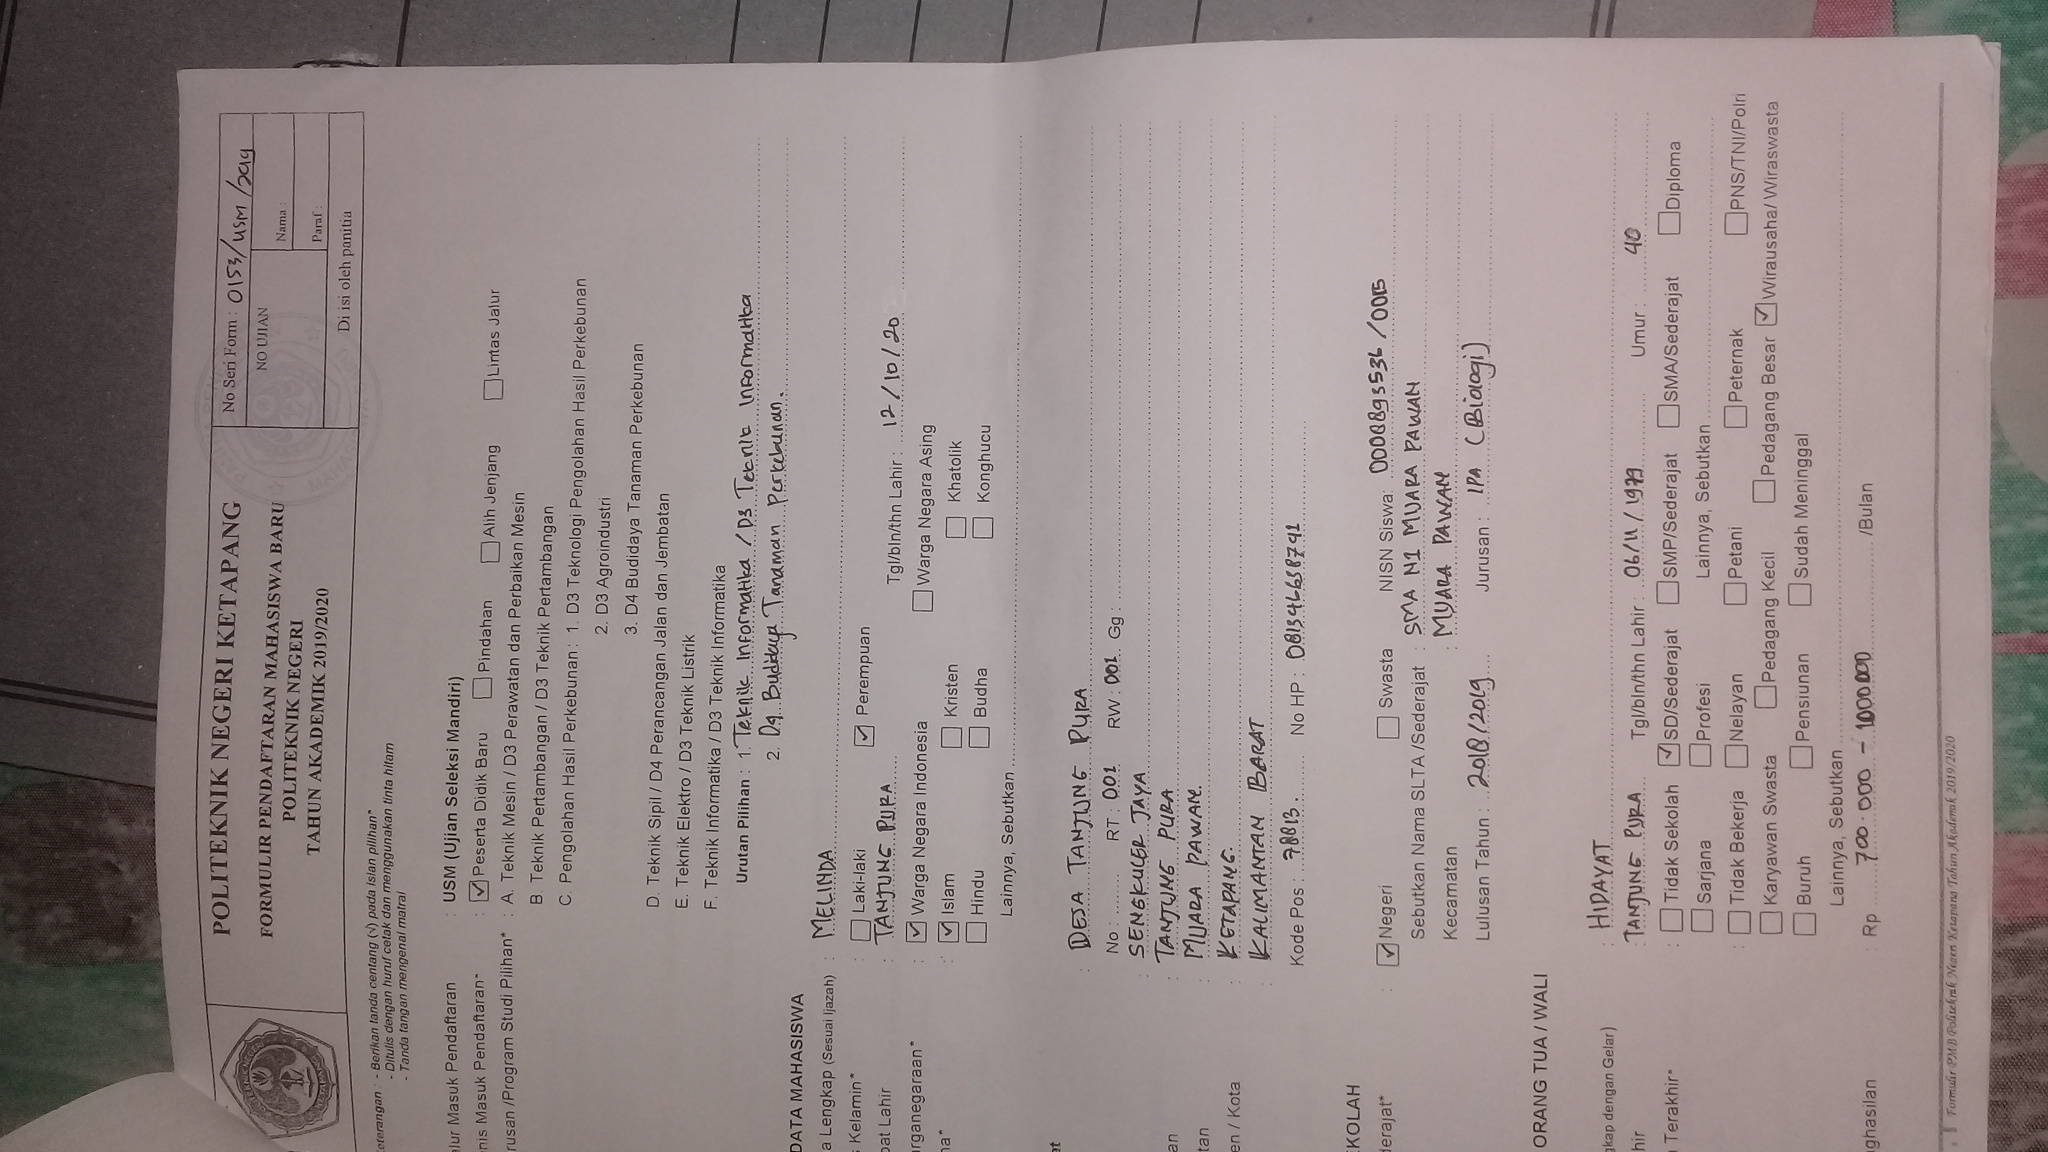 POLITEKNIK NEGERI KETAPANG
FORMULIR PENDAFTARAN MAHASISWA BARU
POLITEKNIK NEGERI
TAHUN AKADEMIK 2019/2020
No Seri Form : 0153/USM/2019
NO UJIAN
Nama :
Paraf :
Di isi oleh panitia
eterangan : - Berikan tanda centang (√) pada isian pilihan*
- Ditulis dengan huruf cetak dan menggunakan tinta hitam
- Tanda tangan mengenai matrai
alur Masuk Pendaftaran : USM (Ujian Seleksi Mandiri)
nis Masuk Pendaftaran* : ✓ Peserta Didik Baru Pindahan Alih Jenjang Lintas Jalur
rusan /Program Studi Pilihan* : A. Teknik Mesin / D3 Perawatan dan Perbaikan Mesin
B. Teknik Pertambangan / D3 Teknik Pertambangan
C. Pengolahan Hasil Perkebunan : 1. D3 Teknologi Pengolahan Hasil Perkebunan
2. D3 Agroindustri
3. D4 Budidaya Tanaman Perkebunan
D. Teknik Sipil / D4 Perancangan Jalan dan Jembatan
E. Teknik Elektro / D3 Teknik Listrik
F. Teknik Informatika / D3 Teknik Informatika
Urutan Pilihan : 1. Teknik Informatika / D3 Teknik Informatika
2. D4 Budidaya Tanaman Perkebunan.
DATA MAHASISWA
a Lengkap (Sesuai Ijazah) : MELINDA
s Kelamin* : Laki-laki ✓ Perempuan
pat Lahir : TANJUNG PURA Tgl/bln/thn Lahir : 12/10/20
arganegaraan* : ✓ Warga Negara Indonesia Warga Negara Asing
ma* : ✓ Islam Kristen Khatolik
Hindu Budha Konghucu
Lainnya, Sebutkan
at
: DESA TANJUNG PURA
No : RT : 001 RW : 001 Gg :
: SENGKULER JAYA
an : TANJUNG PURA
tan : MUARA PAWAN.
en / Kota : KETAPANG.
: KALIMANTAN BARAT
Kode Pos : 78813. No HP :
EKOLAH
derajat* : ✓ Negeri Swasta NISN Siswa:
Sebutkan Nama SLTA /Sederajat : SMA N1 MUARA PAWAN
Kecamatan : MUARA PAWAN
Lulusan Tahun : 2018/2019 Jurusan : IPA (Biologi)
ORANG TUA / WALI
gkap dengan Gelar) : HIDAYAT
hir : TANJUNG PURA Tgl/bln/thn Lahir : 06/11/1979 Umur : 40
n Terakhir* : Tidak Sekolah ✓ SD/Sederajat SMP/Sederajat SMA/Sederajat Diploma
Sarjana Profesi Lainnya, Sebutkan
: Tidak Bekerja Nelayan Petani Peternak PNS/TNI/Polri
Karyawan Swasta Pedagang Kecil Pedagang Besar ✓ Wirausaha/ Wiraswasta
Buruh Pensiunan Sudah Meninggal
Lainnya, Sebutkan
nghasilan : Rp 700.000 - 1000000 /Bulan
Formulir PMB Politeknik Negeri Ketapang Tahun Akademik 2019/2020